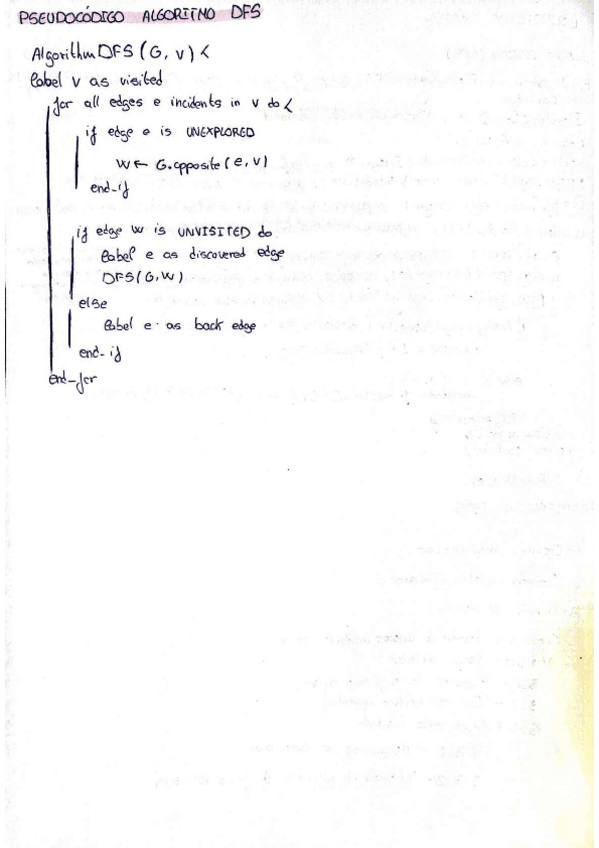 PSEUDOCÓDIGO ALGORITMO DFS
Algorithm DFS (G, v) <
label v as visited
for all edges e incidents in v do <
if edge e is UNEXPLORED
W ← G.opposite (e, v)
end-if
if edge W is UNVISITED do
label e as discovered edge
DFS(G, W)
else
label e as back edge
end-if
end-for